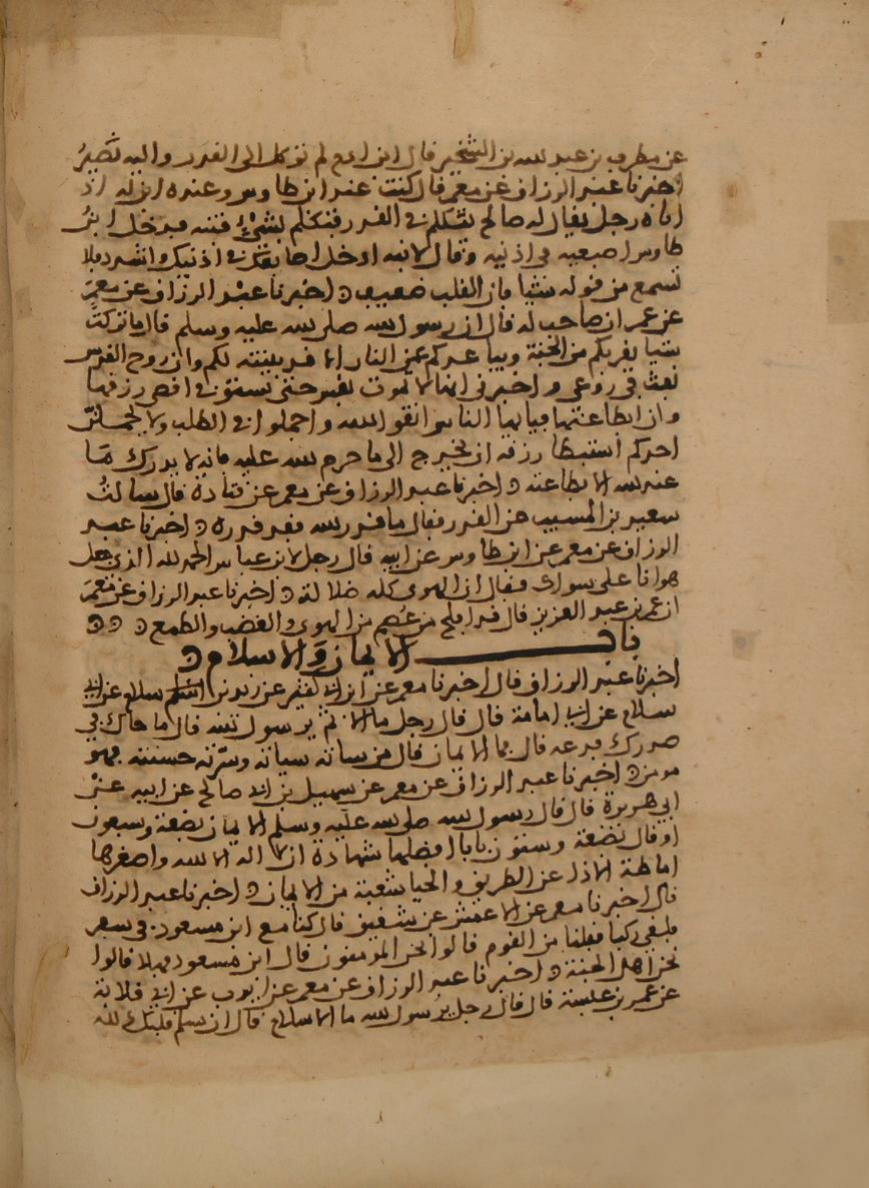 عن مطرف بن عبد الله بن الشخير قال ابن ادم لم توكل الى القدر واليه تصير
اخبرنا عبد الرزاق عن معمر قال كنت عند ابن طاوس وعنده ابن له اذ
اتاه رجل يقال له صالح يتكلم في القدر فتكلم بشيء فتنبه فدخل ابن
طاوس اصبعيه في اذنيه وقال لابنه ادخل اصابعك في اذنيك واشدد فلا
تسمع من قوله شيا فان القلب ضعيف ۞ اخبرنا عبد الرزاق عن معمر
عن عمران صاحب له قال ان رسول الله صلى الله عليه وسلم قال ما تركت
شيا يقربكم من الجنة ويباعدكم عن النار الا قد بينته لكم وان روح القدس
نفث في روعي واخبرني انها لا تموت نفس حتى تستوفي اقصى رزقها
وان ابطا عنها فيا ايها الناس اتقوا الله واجملوا في الطلب ولا يحملن
احدكم استبطا رزقه ان يخرج الى ما حرم الله عليه فانه لا يدرك ما
عند الله الا بطاعته ۞ اخبرنا عبد الرزاق عن معمر عن قتادة قال سالت
سعيد بن المسيب عن القدر فقال ما قدر الله فقد قدره ۞ اخبرنا عبد
الرزاق عن معمر عن ابن طاوس عن ابيه قال رجل لابن عباس الحمد لله الذي جعل
هوانا على سواك فقال ان الهوى كله ضلالة ۞ اخبرنا عبد الرزاق عن معمر
ان عمر بن عبد العزيز قال قد افلح من عصم من الهوى والغضب والطمع ۞ ۞۞
باب الايمان والاسلام ۞
اخبرنا عبد الرزاق قال اخبرنا معمر عن ابن ابي كثير عن زيد بن سلام عن ابي
سلام عن ابي امامة قال قال رجل ما الاثم يرسول الله قال ما حاك في
صدرك فدعه قال فما الايمان قال من ساته سياته وسرته حسنته فهو
مومن ۞ اخبرنا عبد الرزاق عن معمر عن سهيل بن ابي صالح عن ابيه عن
ابي هريرة قال قال رسول الله صلى الله عليه وسلم الايمان بضعة وسبعون
او قال بضعة وستون بابا افضلها شهادة ان لا اله الا الله واصغرها
اماطة الاذى عن الطريق والحيا شعبة من الايمان ۞ اخبرنا عبد الرزاق
قال اخبرنا معمر عن الاعمش عن شقيق قال كنا مع ابن مسعود في سفر
فلقي ركبا فقلنا من القوم قالوا نحن المومنون قال ابن مسعود فهلا قالوا
نحن اهل الجنة ۞ اخبرنا عبد الرزاق عن معمر عن ايوب عن ابي قلابة
عن عمرو بن عبسة قال قال رجل يرسول الله ما الاسلام قال ان تسلم قلبك لله